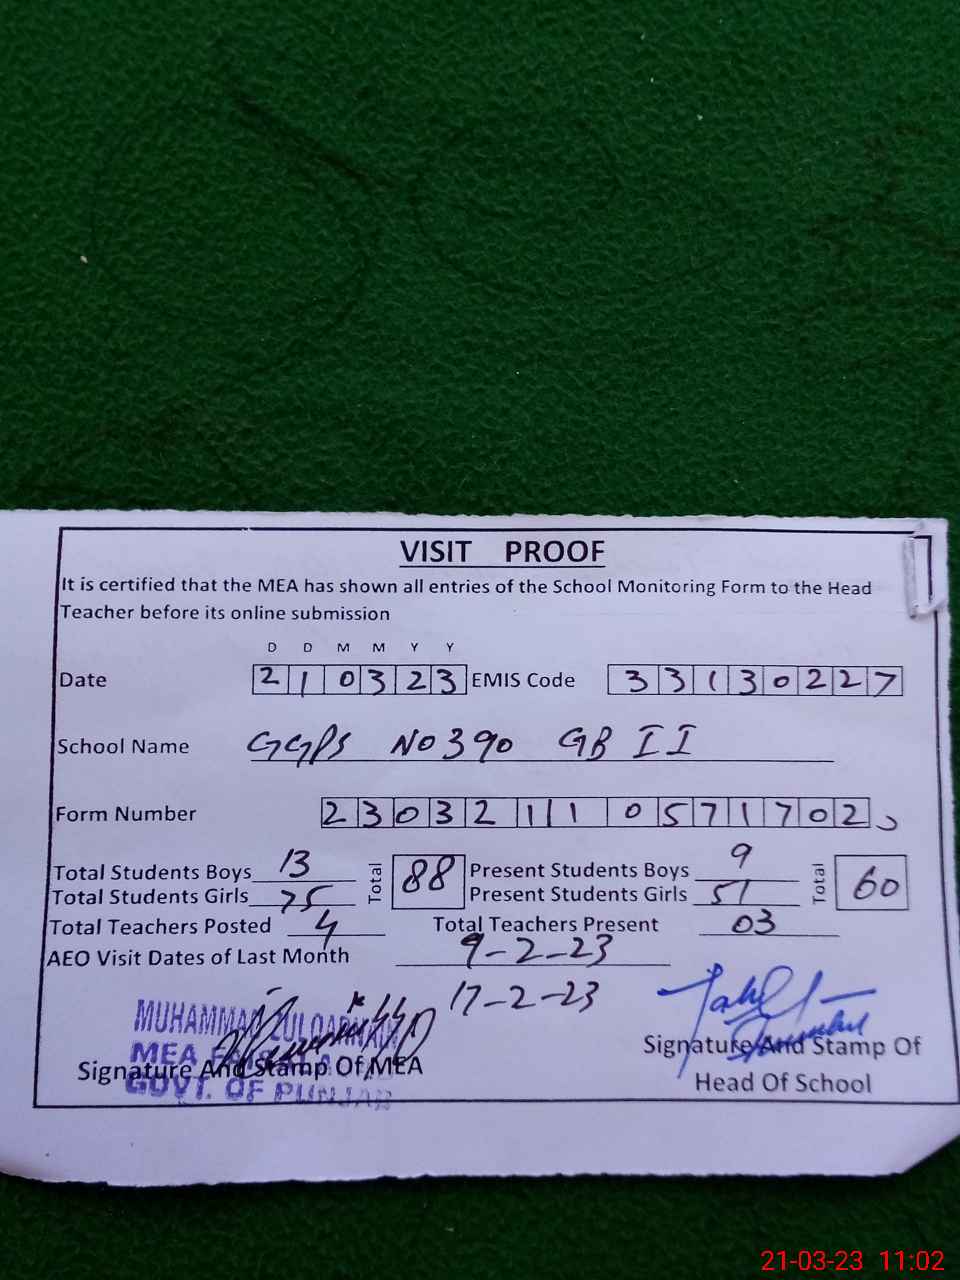 VISIT PROOF
It is certified that the MEA has shown all entries of the School Monitoring Form to the Head
Teacher before its online submission
D D M M Y Y
Date 2 1 0 3 2 3 EMIS Code 3 3 1 3 0 2 2 7
School Name GGPS NO 390 GB II
Form Number 2 3 0 3 2 1 1 1 0 5 7 1 7 0 2
Total Students Boys 13 Total 88 Present Students Boys 9 Total 60
Total Students Girls 75 Present Students Girls 51
Total Teachers Posted 4 Total Teachers Present 03
AEO Visit Dates of Last Month 9-2-23
17-2-23
MUHAMMAD ZULQARNAIN
MEA
GOVT. OF PUNJAB
Signature And Stamp Of MEA
Signature And Stamp Of
Head Of School
21-03-23 11:02